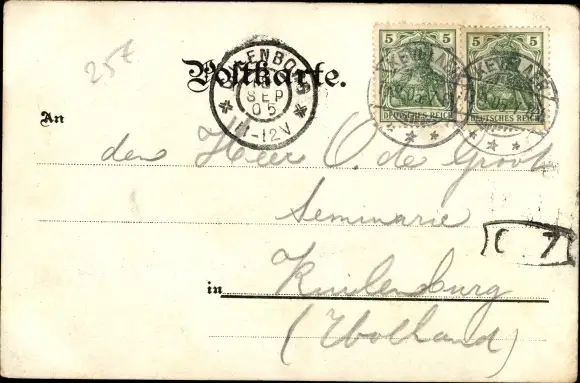 25€
Postkarte.
5 5 5 5
SEP
05
11-12V
DEUTSCHES REICH DEUTSCHES REICH
An
den Heer O. de Groot
Seminarie
in Kuilenburg
(Holland)
C 7